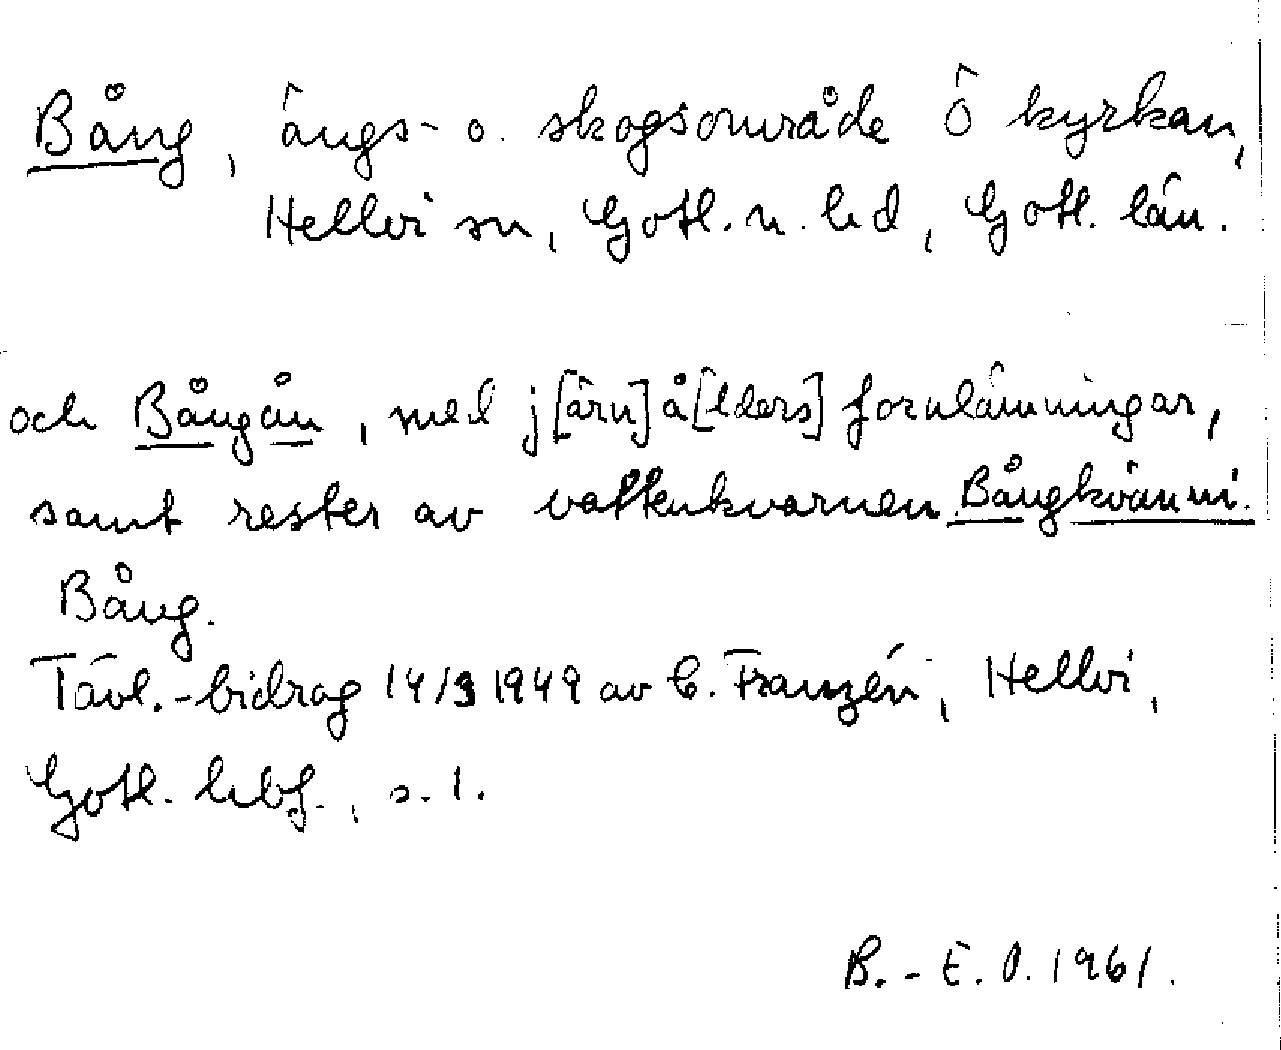 Bång, ängs- o. skogsområde Ö kyrkan,
Hellvi sn, Gotl. n. hd, Gotl. län.
och Bångån, med j[ärn]å[lders] fornlämningar,
samt rester av vattenkvarnen Bångkvänni.
Bång.
Tävl.-bidrag 14/3 1949 av C. Franzén, Hellvi,
Gotl. hbf., s. 1.
B.-E. O. 1961.